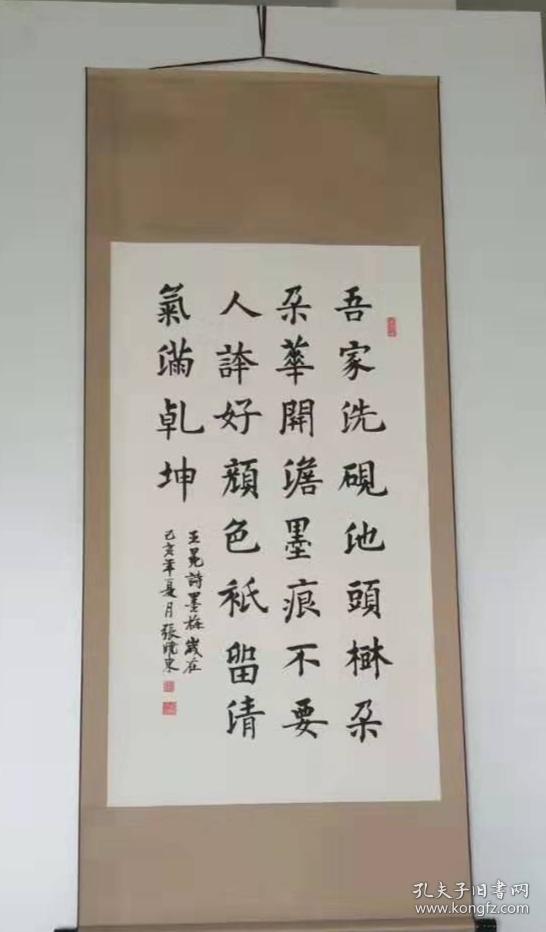 吾家洗硯池頭樹朶
朶華開澹墨痕不要
人誇好顔色衹留清
氣滿乾坤
王冕詩墨梅歲在
己亥年夏月張曉東
孔夫子旧书网
www.kongfz.com